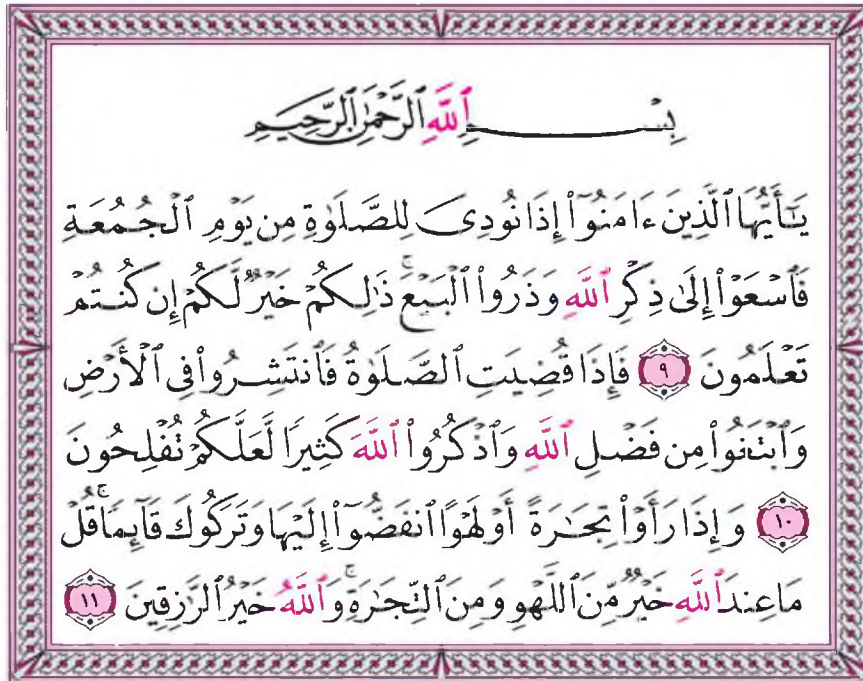 بِسْمِ ٱللَّهِ ٱلرَّحْمَٰنِ ٱلرَّحِيمِ
يَٰٓأَيُّهَا ٱلَّذِينَ ءَامَنُوٓا۟ إِذَا نُودِىَ لِلصَّلَوٰةِ مِن يَوْمِ ٱلْجُمُعَةِ
فَٱسْعَوْا۟ إِلَىٰ ذِكْرِ ٱللَّهِ وَذَرُوا۟ ٱلْبَيْعَ ۚ ذَٰلِكُمْ خَيْرٌ لَّكُمْ إِن كُنتُمْ
تَعْلَمُونَ ٩ فَإِذَا قُضِيَتِ ٱلصَّلَوٰةُ فَٱنتَشِرُوا۟ فِى ٱلْأَرْضِ
وَٱبْتَغُوا۟ مِن فَضْلِ ٱللَّهِ وَٱذْكُرُوا۟ ٱللَّهَ كَثِيرًا لَّعَلَّكُمْ تُفْلِحُونَ
١٠ وَإِذَا رَأَوْا۟ تِجَٰرَةً أَوْ لَهْوًا ٱنفَضُّوٓا۟ إِلَيْهَا وَتَرَكُوكَ قَآئِمًا ۚ قُلْ
مَا عِندَ ٱللَّهِ خَيْرٌ مِّنَ ٱللَّهْوِ وَمِنَ ٱلتِّجَٰرَةِ ۚ وَٱللَّهُ خَيْرُ ٱلرَّٰزِقِينَ ١١